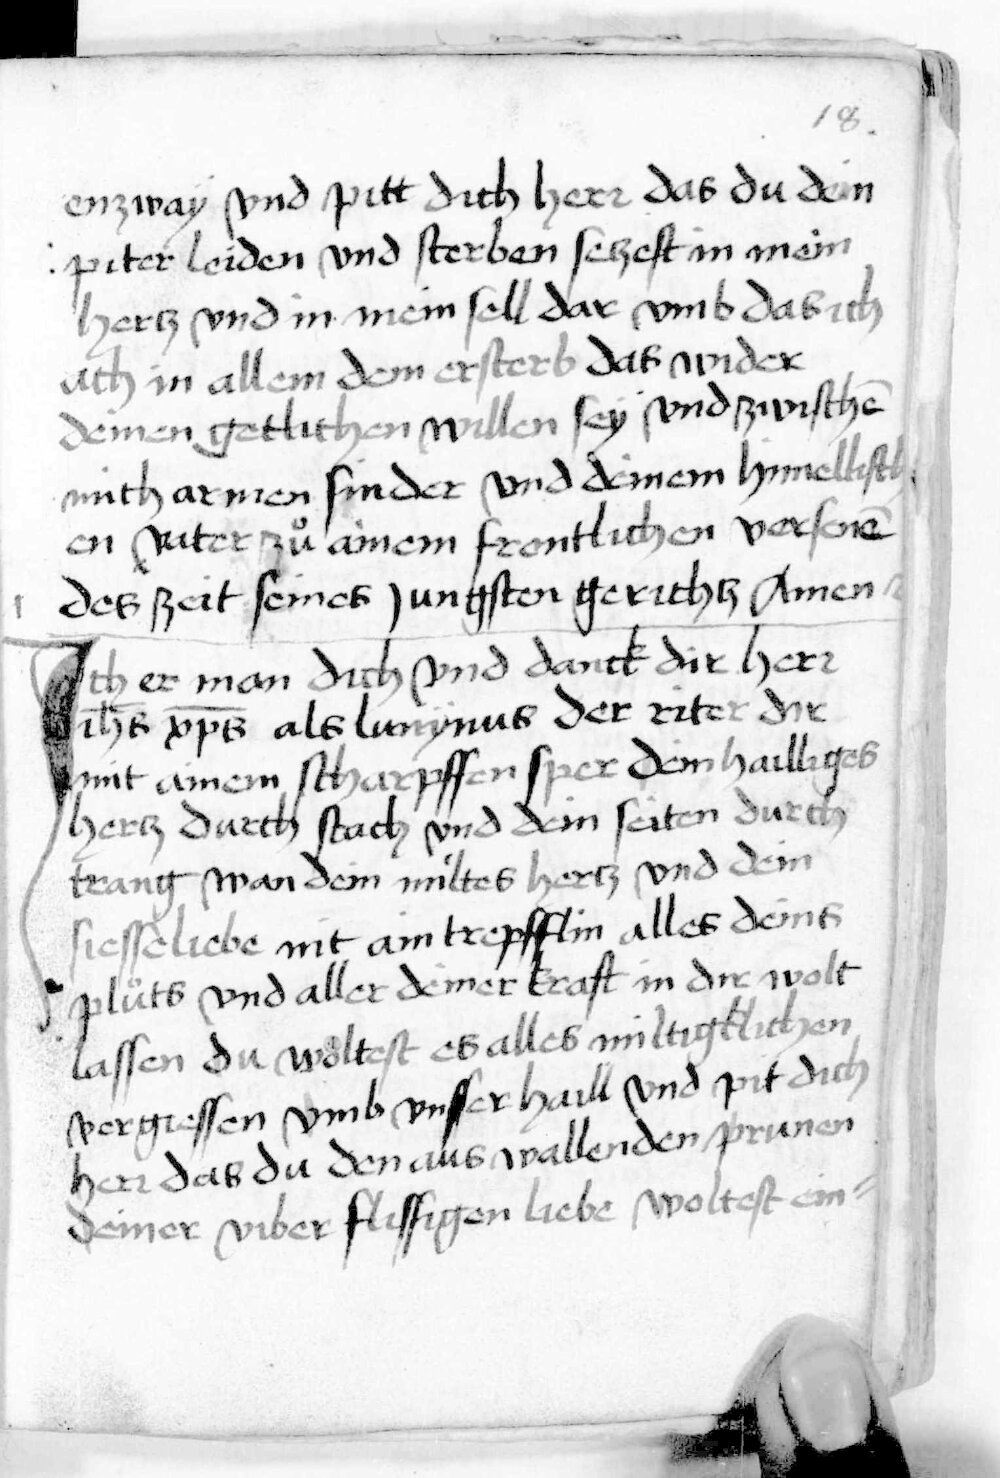 18.
enzway vnd pitt dich herr das du dein
piter leiden vnd sterben seczest in mein
hertz vnd in mein sell dar vmb das ich
ach in allem dem ersterb das wider
deinen getlichen willen sey vnd zwischē
mich armen sinder vnd deinem himellisch
en vater zů ainem frontlichen versonē
des zeit seines Jungsten gerichtz Amen
Ich er man dich vnd danck dir herr
ihs xps als lunyinus der riter dir
mit ainem scharpffen sper dein hailliges
hertz durch stach vnd dein seiten durch
trang wan dein miltes hertz vnd dein
siesse liebe nit ain trepfflin alles deins
plůts vnd aller deiner kraft in dir wolt
lassen du woltest es alles miltigklichen
vergiessen vmb vnsser haill vnd pit dich
herr das du den aus wallenden prunen
deiner viber flissigen liebe woltest ein=